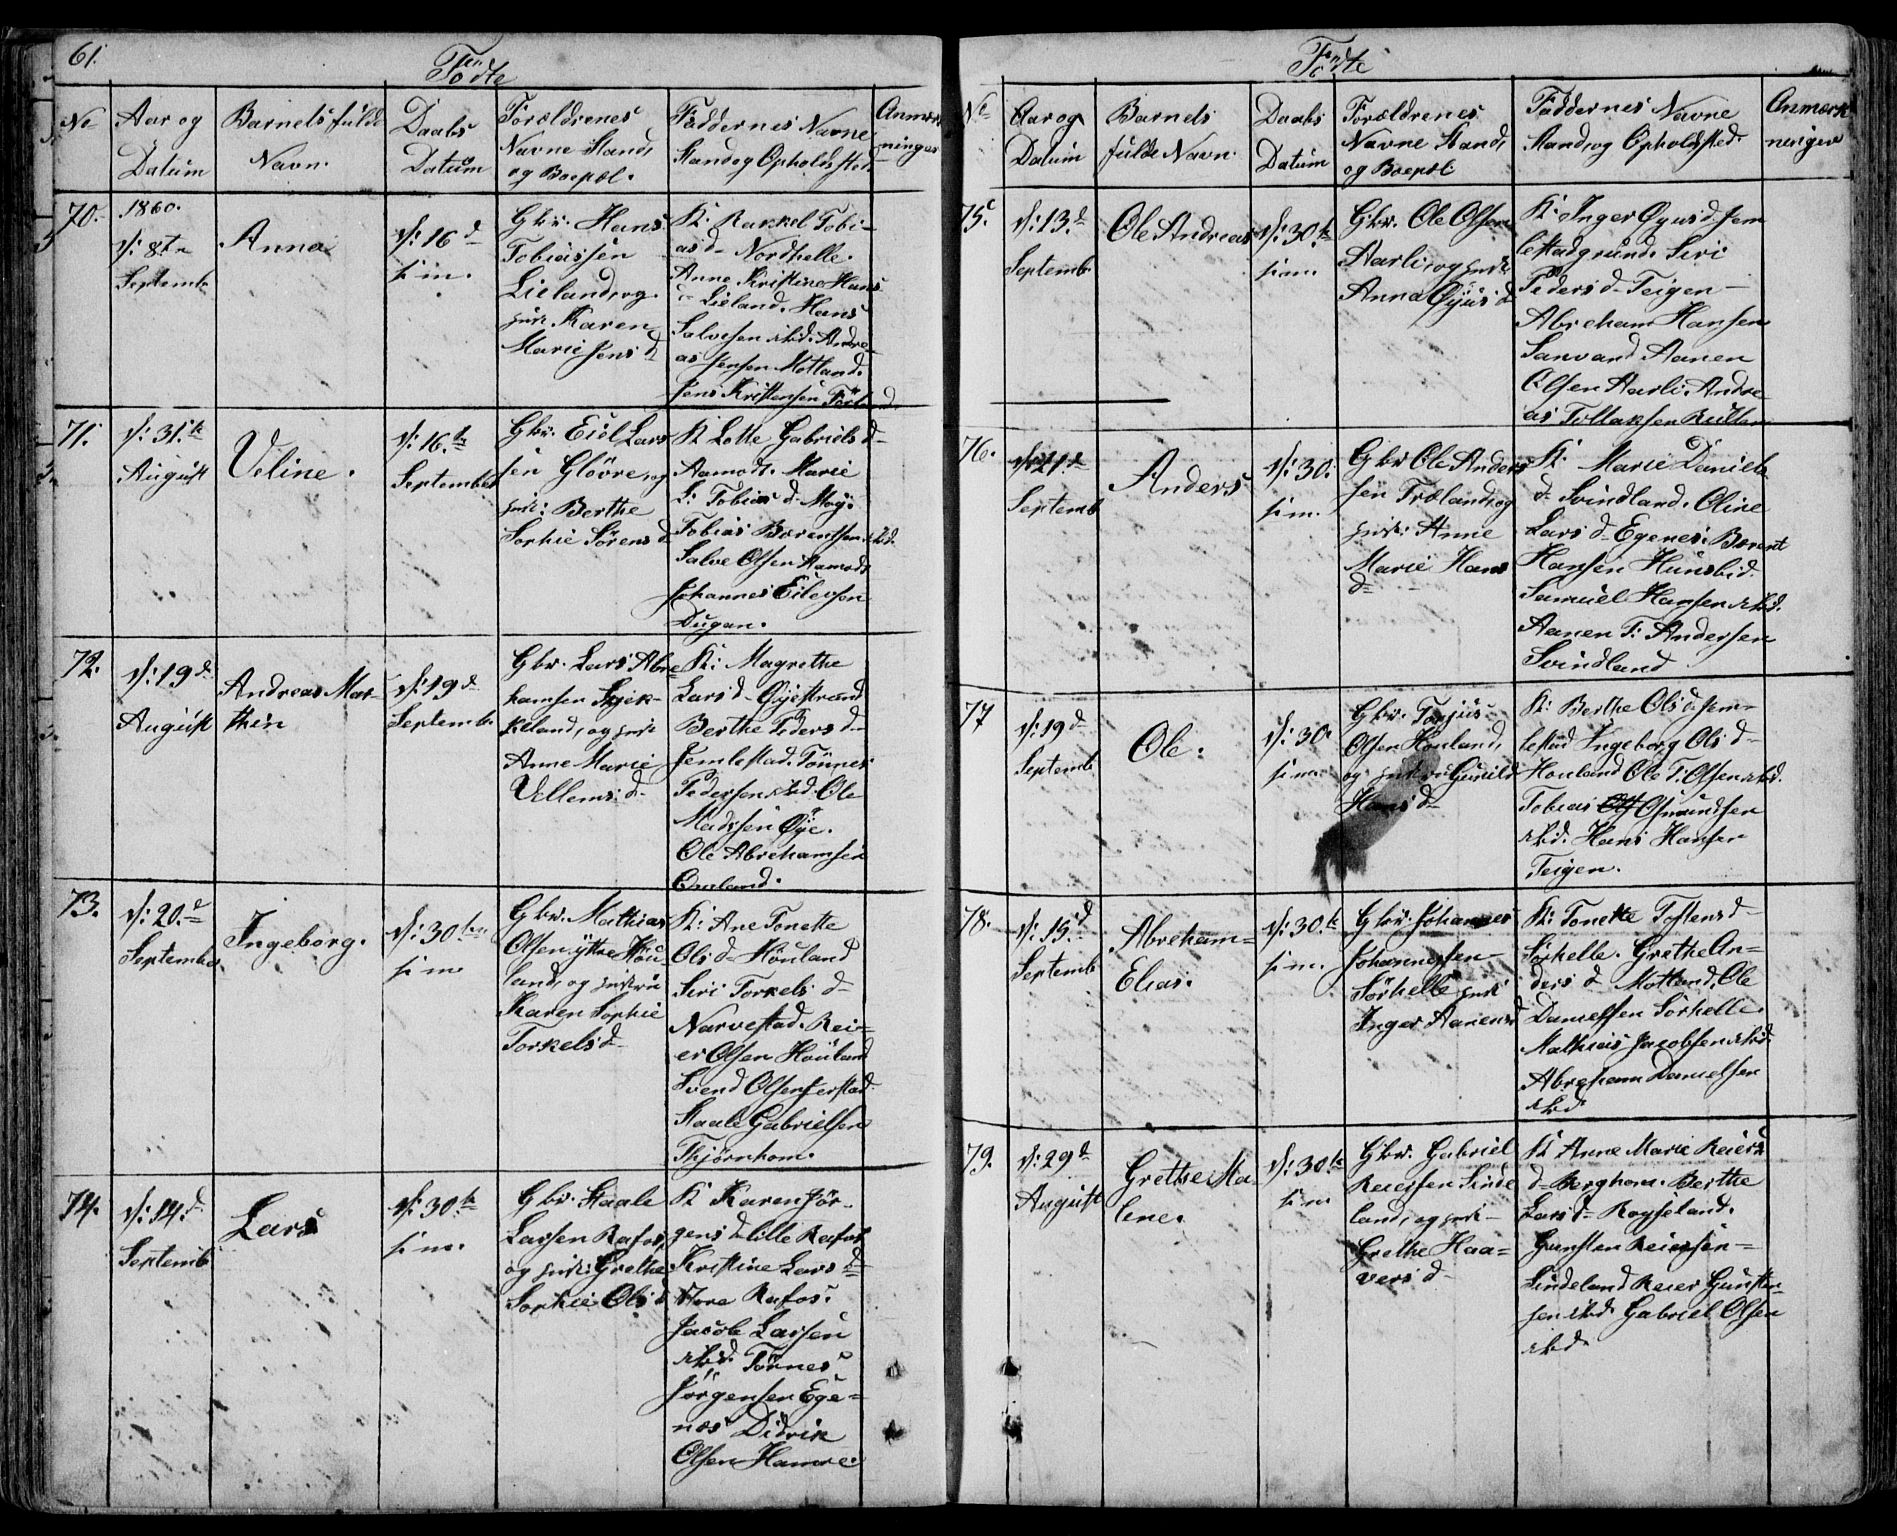 61.
Födte
No
Aar og
Datum
Barnets fulde
Navn.
Daabs
Datum
Forældrenes
Navne Stand,
og Boepæl.
Faddernes Navne
Stand og Opholdssted.
Anmærk
ninger
70.
1860.
d: 8de
Septemb
Anna
d: 16 d
s: m.
Gbr. Hans
Tobiassen
Lieland, og
hust: Karen
Marie Jens d
K: Rackel Tobi-
as d- Nordhelle.
Anne Kristine Hans
d- Lieland. Hans
Salvesen ibid. Andre-
as Jensen Motland.
Jens Kristensen
71.
d: 31te
August
Veline.
d: 16te
September
Gbr. Eiel Lars
sen Glövre, og
hust: Berthe
Sophie Sörens d
K Lotte Gabriels d-
Aamodt. Marie
L: Tobias d- Moy.
Tobias Bærentsen ibid.
Salve Olsen Aamodt
Johannes Eilevsen
Dugan.
72.
d: 19 d
August
Andreas Mar-
thin
d: 19 d
Septemb
Gbr. Lars Abre-
hamsen
keland, og hust
Anne Marie
Vellems: d-
K: Magrethe
Lars d- Øyestrand
Berthe Peders d-
Jemlestad. Tönnes
Pedersen ibid. Ole
Madssen Øye.
Ole Abrehamsen
Omland.
73.
d: 20. d
September
Ingeborg.
d: 30te
s: m
Gbr. Mathias
Olsen ytre Hou
land, og hustru
Karen Sophie
Torkels d-
K: Ane Tonette
Ols d- Höuland
Siri Torkels d-
Narvestad. Rei-
er Olsen Höuland
Svend Olsen Jerstad.
Staale Gabrielsen
Thjörnhom.
74.
d: 14. d
Septemb
Lars
d: 30te
s: m.
Gbr. Staale
Larsen Rafos,
og hust: Grethe
Sophie Ols d
K Karen Jör-
gens d- lille Rafos
Kristine Lars d-
store Rafos.
Jacob Larsen
ibid. Tönnes
Jörgensen Ege-
næs Didrik
Olsen Hamre
Födte
No
Aar og
Datum
Barnets
fulde Navn.
Daabs
Datum
Forældrenes
Navne Stand,
og Boepæl
Faddernes Navne
Stand, og Opholdsted.
Anmærk
ninger
75.
d: 13. d
Septemb
Ole Andreas
d: 30te
s: m.
Gbr. Ole Olsen
Aarli, og hust:
Anna Øyus d
K: Inger Øyus d. Jem
lestadgrund. Siri
Peders d- Teigen-
Abreham Hansen
Sanvand Aanen
Olsen Aarli. Andre
as Tollaksen
76.
d: 21 d
Septemb
Anders
d: 30.
s: m.
Gbr Ole Anders
sen Træland, og
hust: Anne
Marie Hans
d-
K: Marie Daniels
d- Svindland. Oline
Lars d- Egenes. Bærent
Hansen Hunsbed.
Samuel Hansen ibid.
Aanen T: Andersen
Svindland
77
d: 19 d
Septemb
Ole.
d: 30.
s: m.
Gbr. Tarjus
Olsen Höuland,
og hustru Gunild
Hans d-
K: Berthe Ols d. Jem-
lestad Ingeborg Ols d-
Houland Ole T: Olsen ibid.
Tobias Osmundsen
ibid. Hans Hansen
Teigen.
78.
d: 15. d
Septemb
Abreham=
Elias.
d: 30te
s: m.
Gbr. Johannes
Johannessen
Sörhelle hust
Inger Aanens d
K: Tonette Tostens d-
Sörhelle. Grethe An-
ders d Motland. Ole
Danielsen Sörhelle.
Mathias Jacobsen ibid.
Abreham Danielsen
ibid
79.
d: 29 d
August
Grethe Ma
lene.
d: 30te
s: m.
Gbr. Gabriel
Reiersen Linde
land, og hust-
Grethe Haa=
vers d-
K Anne Marie Reiers
d- Berghom. Berthe
Lars d- Røyseland.
Gunsten Reiersen=
Lindeland Reier Gunsten-
sen ibid. Gabriel Olsen
ibid.